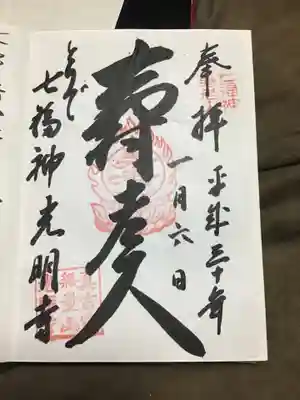 奉拝 平成三十年
一月六日
壽老人
とりで
七福神光明寺